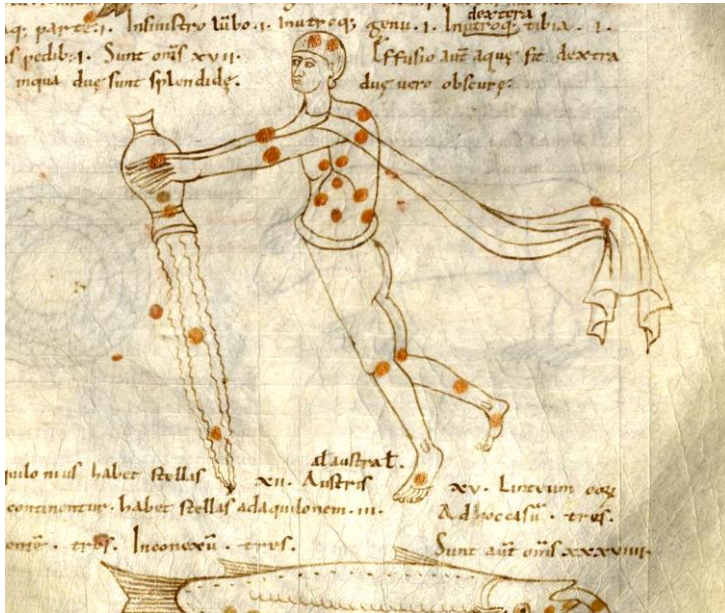 aq; parte .i. Insinistro lūbo .i. Inutroq; genu .i. Inutroq; tibia .i.
dextera
is pedib; .i. Sunt om̄s xvii. Effusio aut̄ aquę fit dextra
inqua duę sunt splendidę. duę uero obscurę.
quilonius habet stellas xii. Austris xv. Linteum eorꝝ
al austral.
continentur. habet stellas adaquilonem .iii. Adhoccasū . tres.
tres. Inconexū . tres. Sunt aut̄ om̄s xxxviiii.